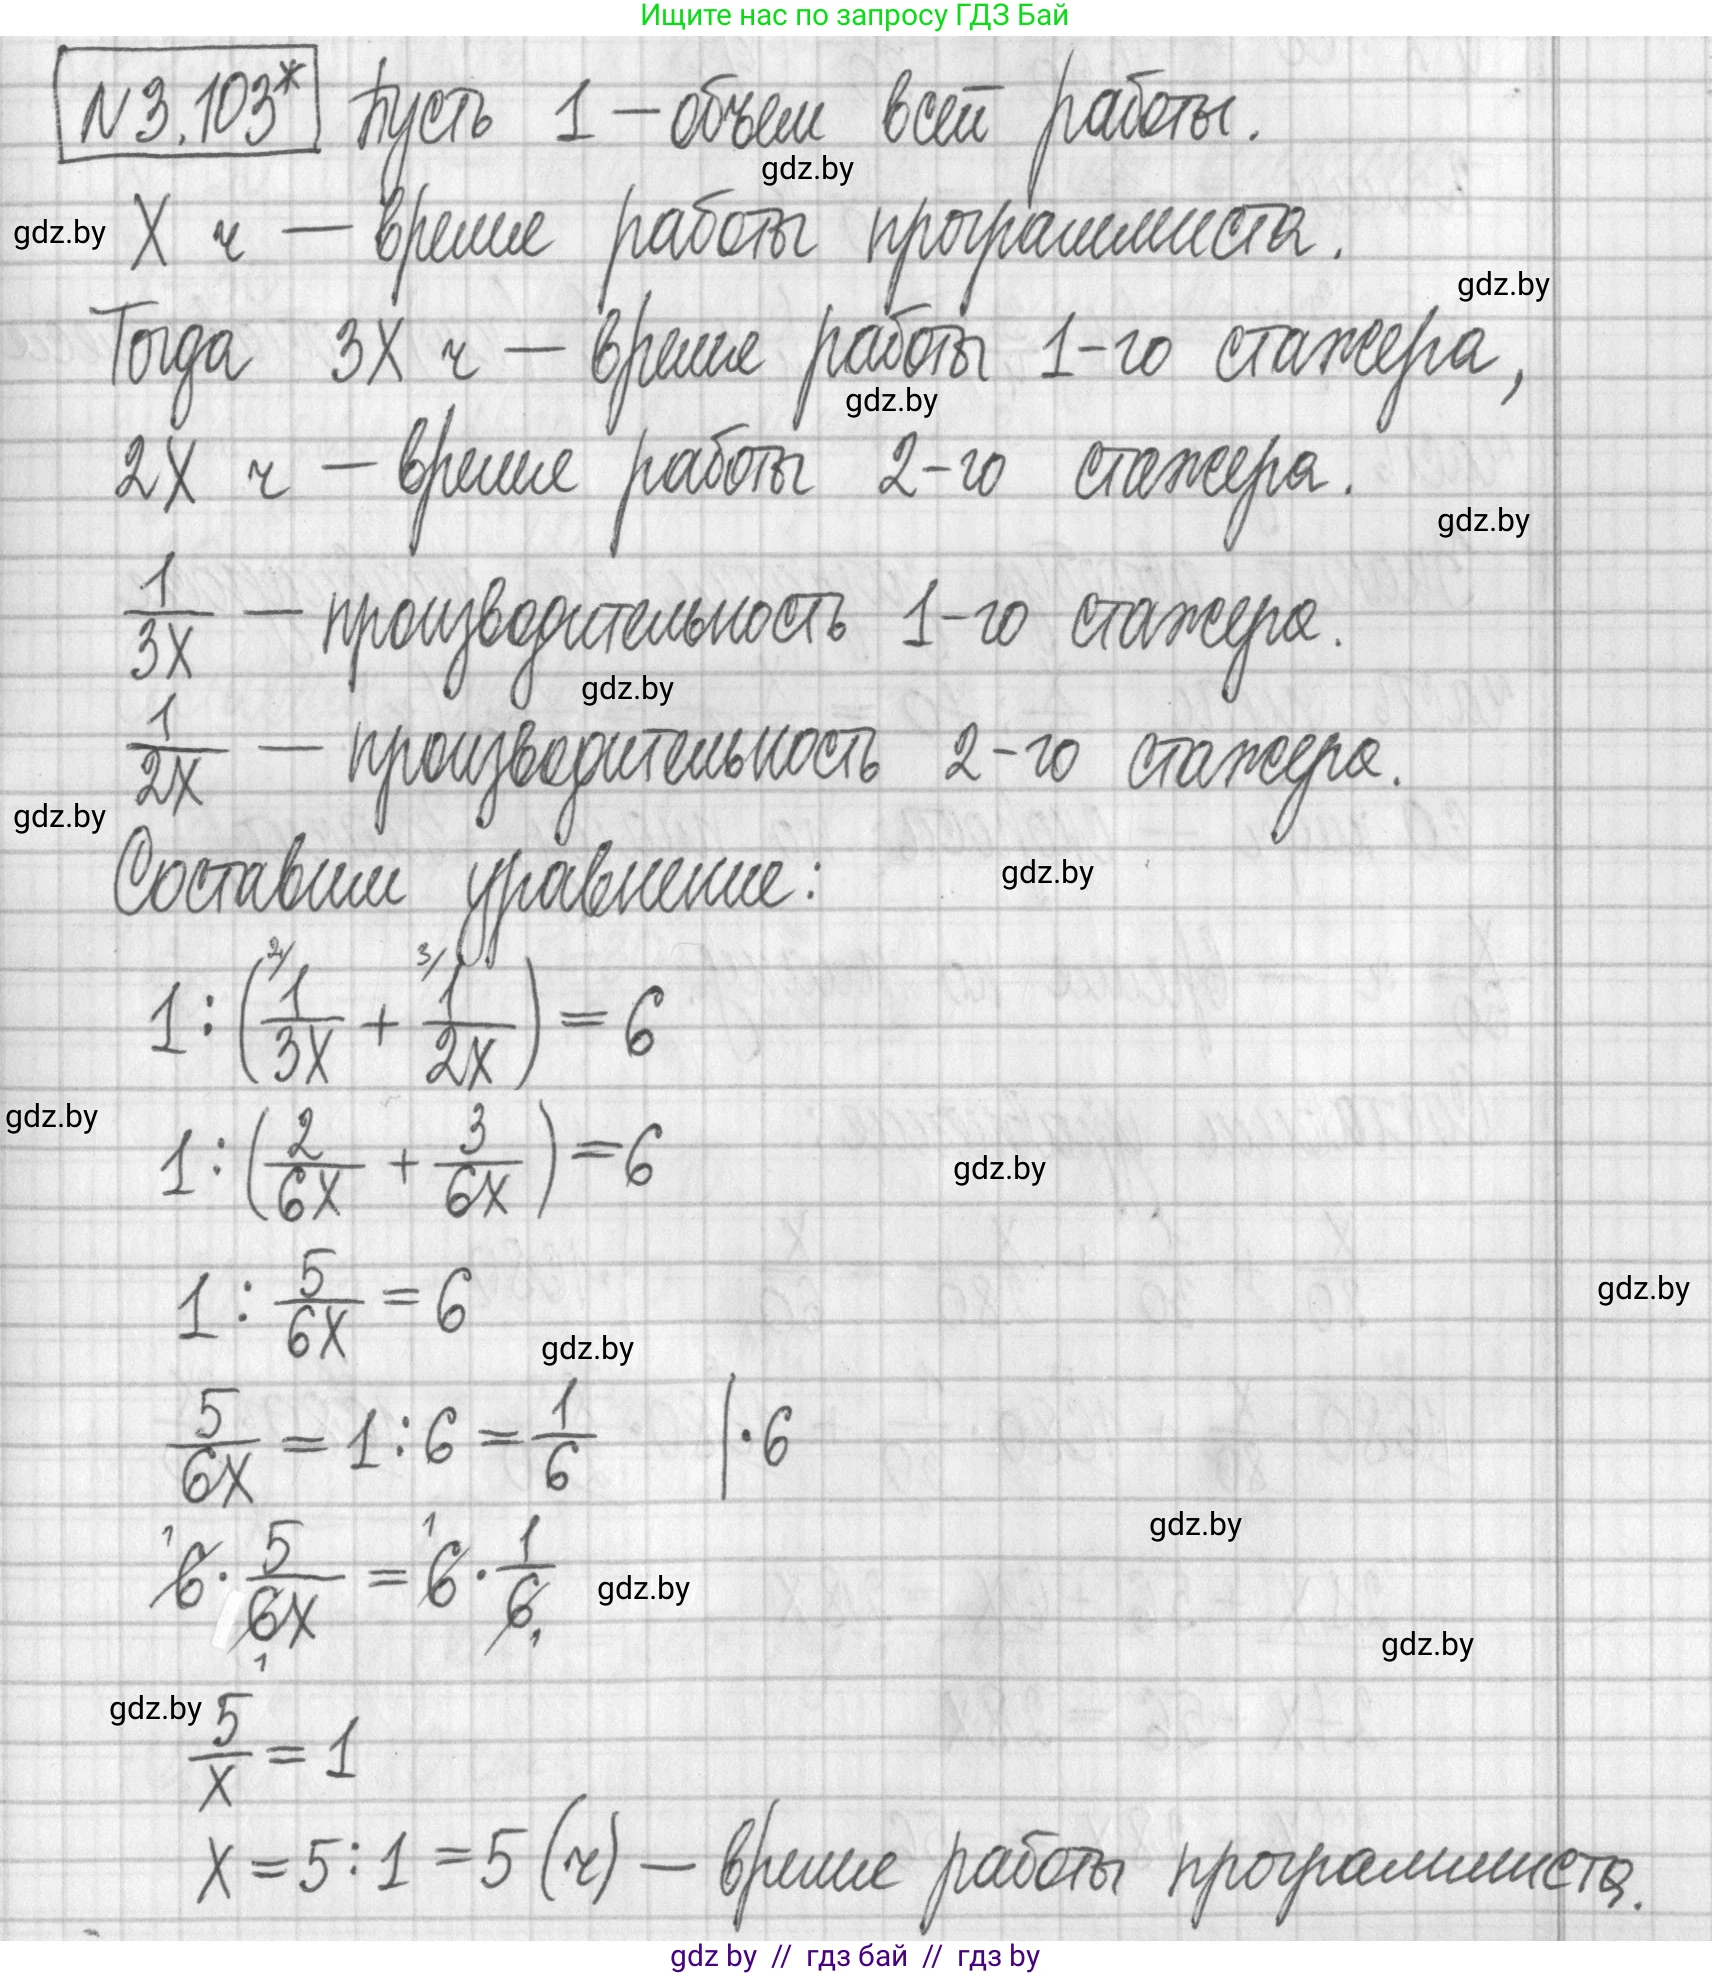 Ищите нас по запросу ГДЗ Бай
N3.103* Пусть 1 – объем всей работы.
gdz.by
gdz.by
X ч — время работы программиста.
gdz.by
Тогда 3X ч — время работы 1-го стажера,
gdz.by
2X ч — время работы 2-го стажера.
gdz.by
1/3X — производительность 1-го стажера.
gdz.by
1/2X — производительность 2-го стажера.
gdz.by
Составим уравнение:
gdz.by
1 : (2/ 1/3X + 3/ 1/2X) = 6
gdz.by
1 : (2/6X + 3/6X) = 6
gdz.by
1 : 5/6X = 6
gdz.by
gdz.by
5/6X = 1 : 6 = 1/6 | · 6
gdz.by
1 6 · 5/6X 1 = 1 6 · 1/6 1
gdz.by
gdz.by
gdz.by
5/X = 1
X = 5 : 1 = 5 (ч) — время работы программиста.
gdz by // гдз бай // гдз by